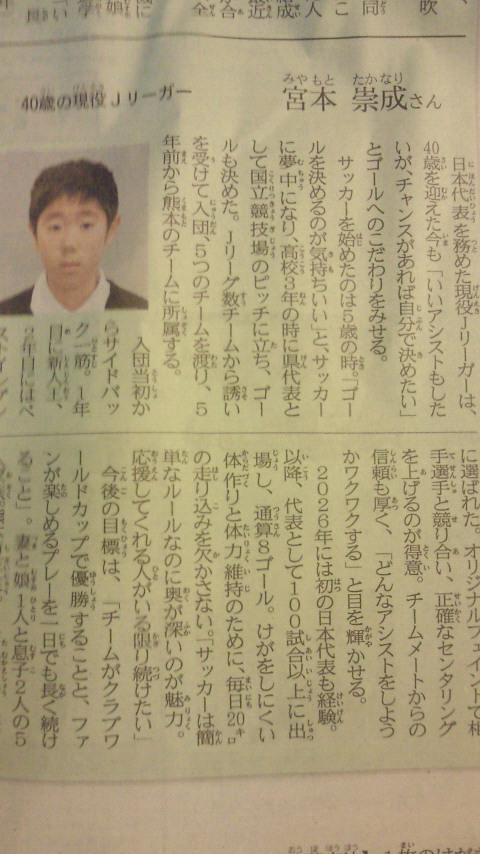 40歳の現役Jリーガー
宮本 崇成さん
日本代表を務めた現役Jリーガーは、
40歳を迎えた今も「いいアシストもした
いが、チャンスがあれば自分で決めたい」
とゴールへのこだわりをみせる。
サッカーを始めたのは5歳の時。「ゴー
ルを決めるのが気持ちいい」と、サッカー
に夢中になり、高校3年の時に県代表と
して国立競技場のピッチに立ち、ゴー
ルも決めた。Jリーグ数チームから誘い
を受けて入団、5つのチームを渡り、5
年前から熊本のチームに所属する。
入団当初か
らサイドバッ
ク一筋。1年
目に新人王、
2年目にはベ
ストイレブン
に選ばれた。オリジナルフェイントで相
手選手と競り合い、正確なセンタリング
を上げるのが得意。チームメートからの
信頼も厚く、「どんなアシストをしよう
かワクワクする」と目を輝かせる。
2026年には初の日本代表も経験。
以降、代表として100試合以上に出
場し、通算8ゴール。けがをしにくい
体作りと体力維持のために、毎日20キロ
の走り込みを欠かさない。「サッカーは簡
単なルールなのに奥が深いのが魅力。
応援してくれる人がいる限り続けたい」
今後の目標は、「チームがクラブワ
ールドカップで優勝することと、ファ
ンが楽しめるプレーを一日でも長く続け
ること」。妻と娘1人と息子2人の5